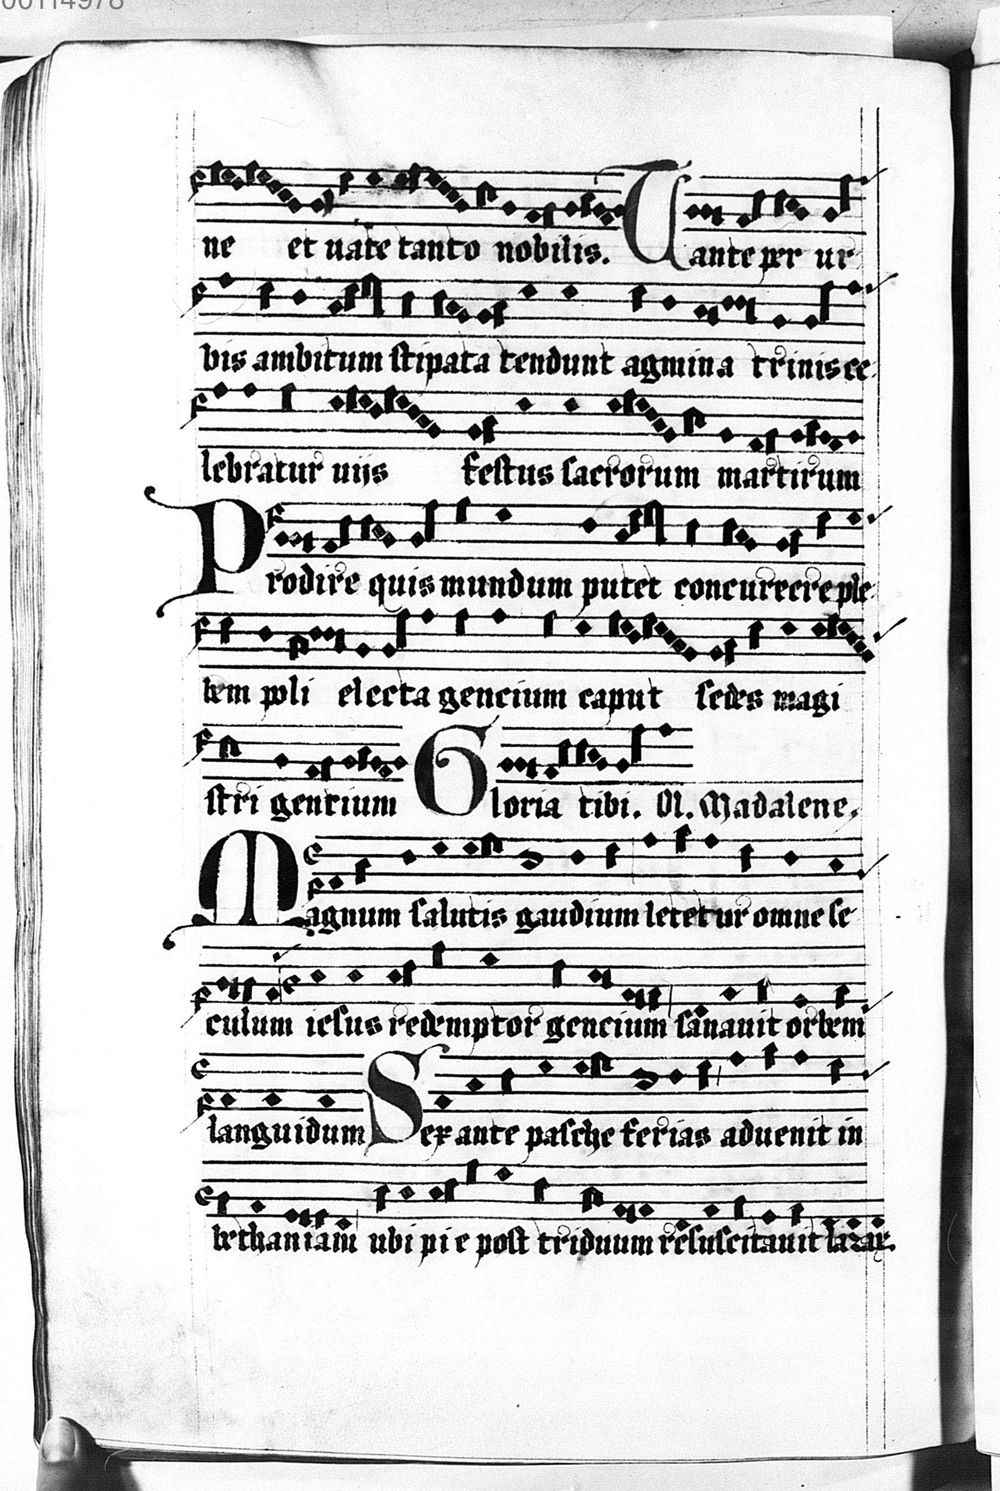 00114978
ne et uate tanto nobilis. Tante per ur
bis ambitum stipata tendunt agmina trinis ce
lebratur uijs festus sacrorum martirum
Prodire quis mundum putet concurrere ple
bem poli electa gencium caput sedes magi
stri gentium Gloria tibi. Ol. Madalene.
Magnum salutis gaudium letetur omne se
culum iesus redemptor gencium sanauit orbem
languidum Sex ante pasche ferias aduenit in
bethaniam ubi pie post triduum resuscitauit lazar.